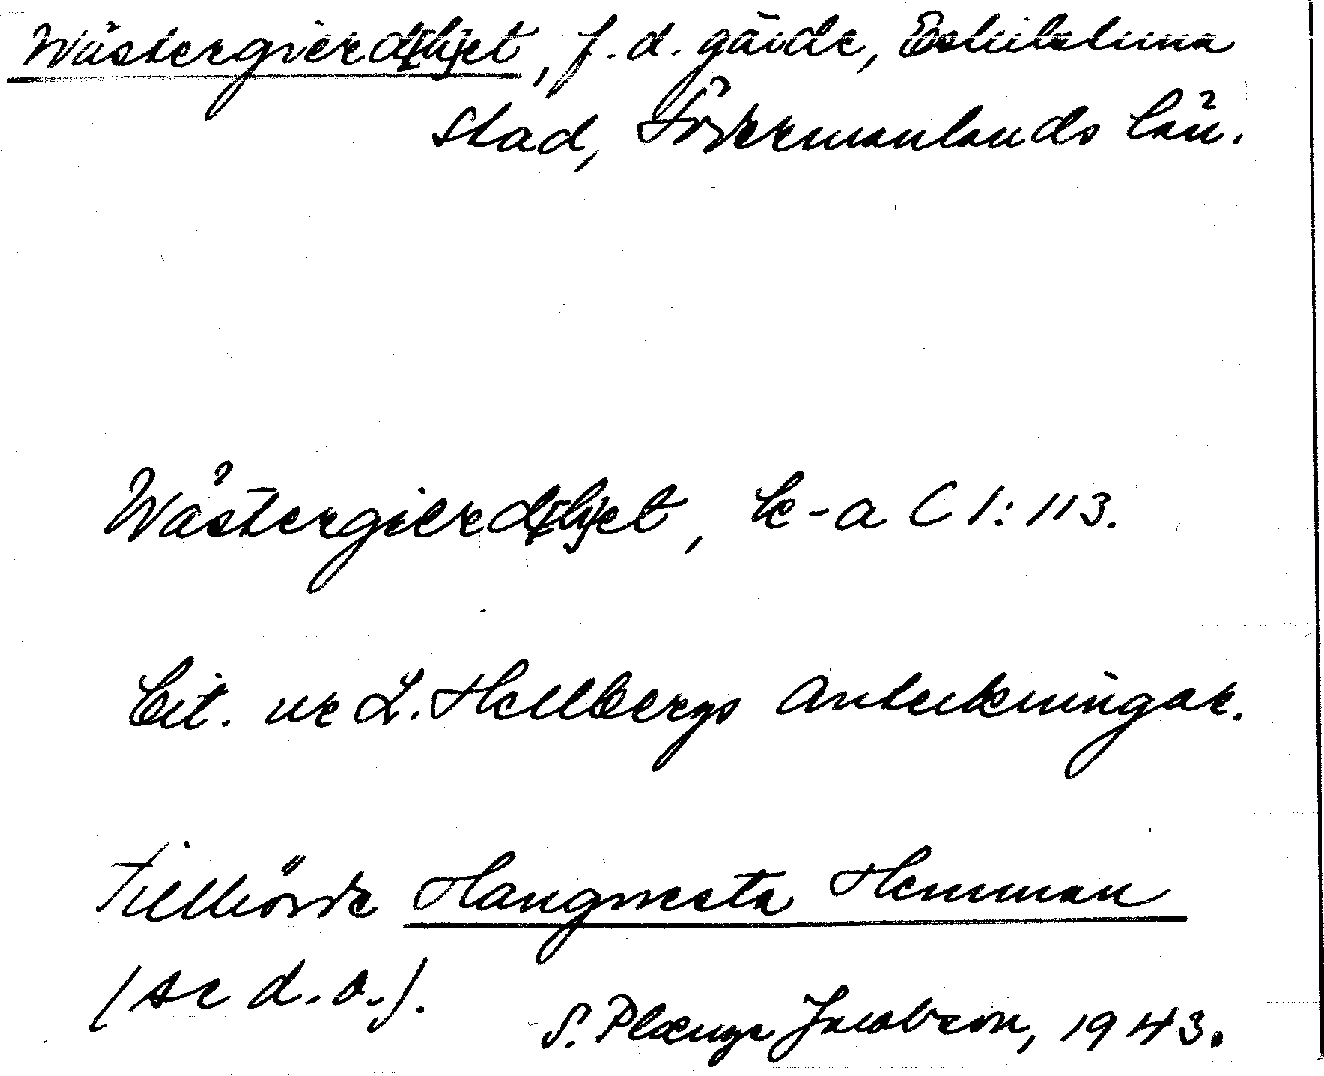 Wästergierd[h]et, f.d. gärde, Eskilstuna
stad, Södermanlands län.
Wästergierd[h]et, k-a C I: 113.
Cit. ur L. Hellbergs anteckningar.
Tillhörde Hangwesta Hemman
(se d.o.).
S. Plænge Jacobson, 1943.